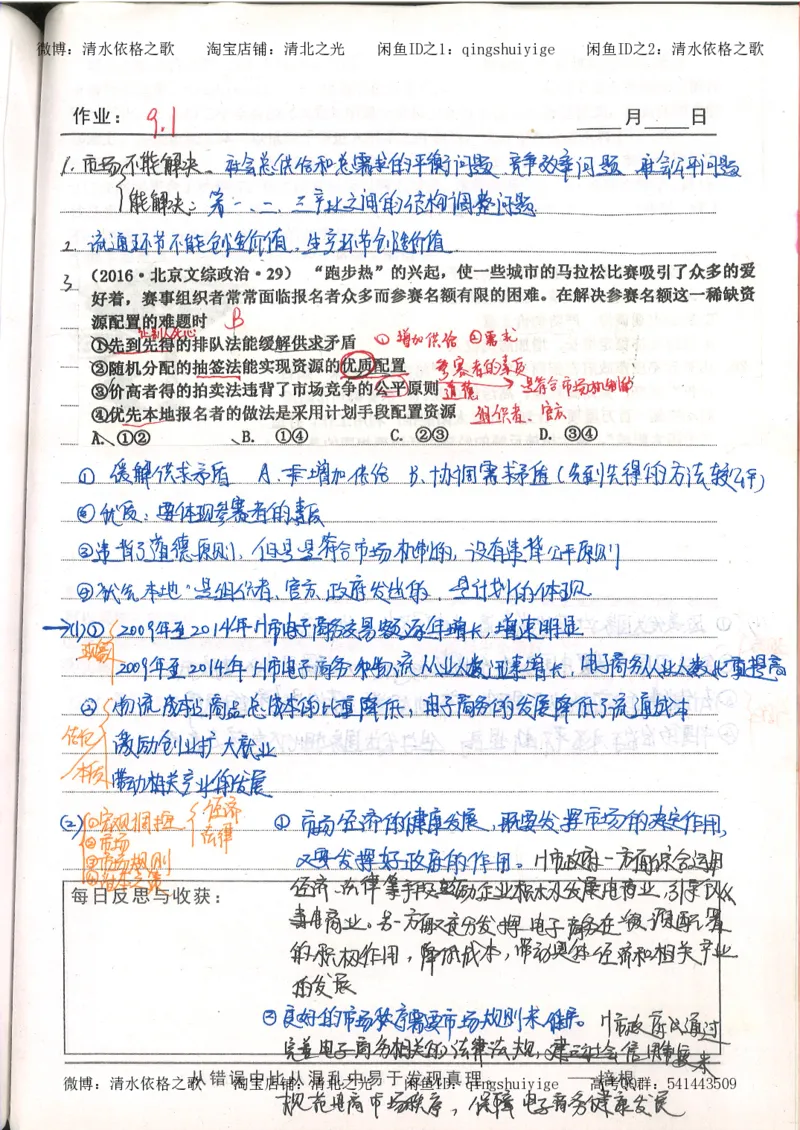 微博：清水依格之歌 淘宝店铺：清北之光 闲鱼ID之1：qingshuiyige 闲鱼ID之2：清水依格之歌
作业： 9.1 ___月___日
1. 市场不能解决：社会总供给和总需求的平衡问题 竞争效率问题 社会公平问题
能解决：第一、二、三产业之间的结构调整问题
2. 流通环节不能创造价值，生产环节创造价值
3. （2016·北京文综政治·29）“跑步热”的兴起，使一些城市的马拉松比赛吸引了众多的爱
好着，赛事组织者常常面临报名者众多而参赛名额有限的困难。在解决参赛名额这一稀缺资
源配置的难题时 B
①先到先得的排队法能缓解供求矛盾 ①增加供给 ②需求
②随机分配的抽签法能实现资源的优质配置 参赛者的素质
③价高者得的拍卖法违背了市场竞争的公平原则 道德 → 是符合市场机制的
④优先本地报名者的做法是采用计划手段配置资源 组织者、官方
A. ①② B. ①④ C. ②③ D. ③④
① 缓解供求矛盾 A. 增加供给 B. 协调需求矛盾（先到先得的方法较公平）
② 优质：要体现参赛者的素质
③ 违背了道德原则，但是是符合市场机制的，没有违背公平原则
④ 优先本地：是组织者、官方、政府发出的，是计划的体现
→(1) ① 2009年至2014年H市电子商务交易额逐年增长，增速明显
现象 2009年至2014年H市电子商务和物流从业人数迅速增长，电子商务从业人数比重提高
② 物流成本占商品总成本的比重降低，电子商务的发展降低了流通成本
激励创业扩大就业
本质 带动相关产业的发展
(2) ①宏观调控 经济 法律 ① 市场经济的健康发展，既要发挥市场的决定作用，
②市场 又要发挥好政府的作用。H市政府一方面综合运用
③市场规则 经济、法律等手段鼓励企业积极发展电商业，引导
每日反思与收获：
电商业。另一方面充分发挥电子商务在资源配置
的积极作用，降低成本，带动实体经济和相关产业
的发展
② 良好的市场秩序需要市场规则来维系。H市政府通过
完善电子商务相关的法律法规，建立社会信用制度来
从错误中比从混乱中易于发现真理 ——培根
微博：清水依格之歌 淘宝店铺：清北之光 闲鱼ID：qingshuiyige 高考QQ群：541443509
规范电商市场秩序，保障电子商务健康发展